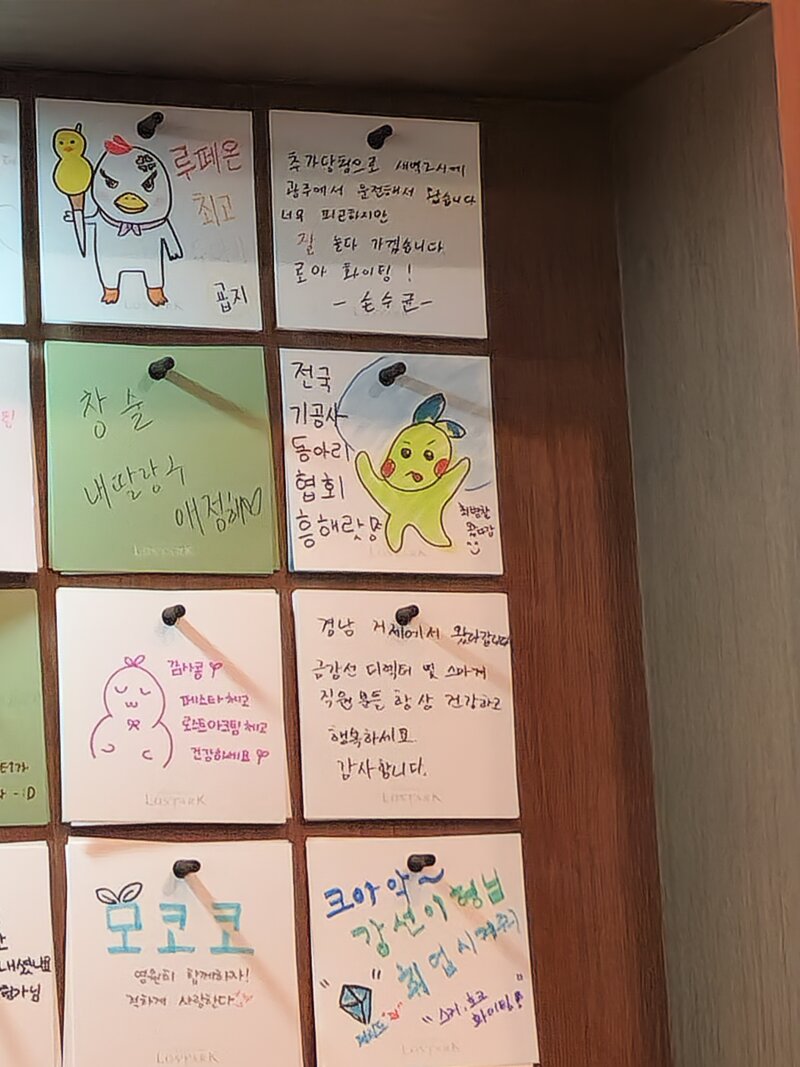 루페온
최고
곱지
추가당첨으로 새벽2시에
광주에서 운전해서 왔습니다
너무 피곤하지만
잘 놀다 가겠습니다
로아 화이팅!
- 손수균 -
창술
내딸랑구
애정해♡
LOSTARK
전국
기공사
동아리
협회
흥해랏
감사콩
페스타 최고
로스트아크팀 최고
건강하세요
LOSTARK
경남 거제에서 왔다갑니다
금강선 디렉터 및 스마게
직원분들 항상 건강하고
행복하세요.
감사합니다.
LOSTARK
:D
모코코
영원히 함께하자!
격하게 사랑한다
LOSTARK
크아악~
강선이형님
취업시켜줘
"스커, 호크
화이팅"
LOSTARK